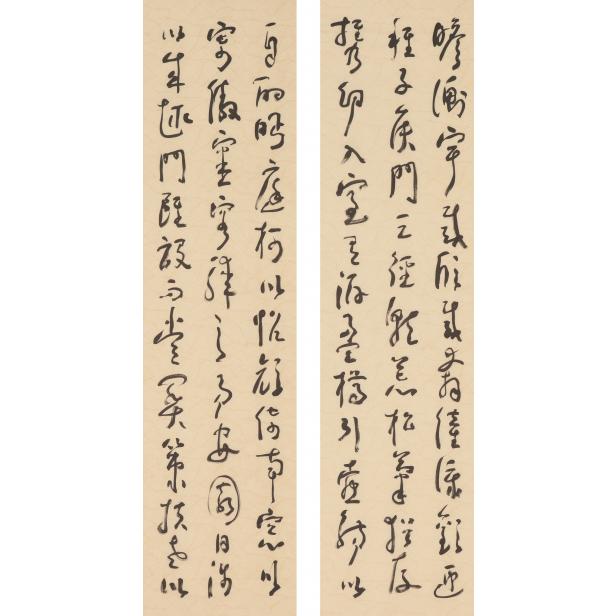 瞻衡宇載欣載奔僮僕歡迎
稚子候門三徑就荒松菊猶存
攜幼入室有酒盈樽引壺觴以
自酌眄庭柯以怡顏倚南窗以
寄傲審容膝之易安園日涉
以成趣門雖設而常關策扶老以